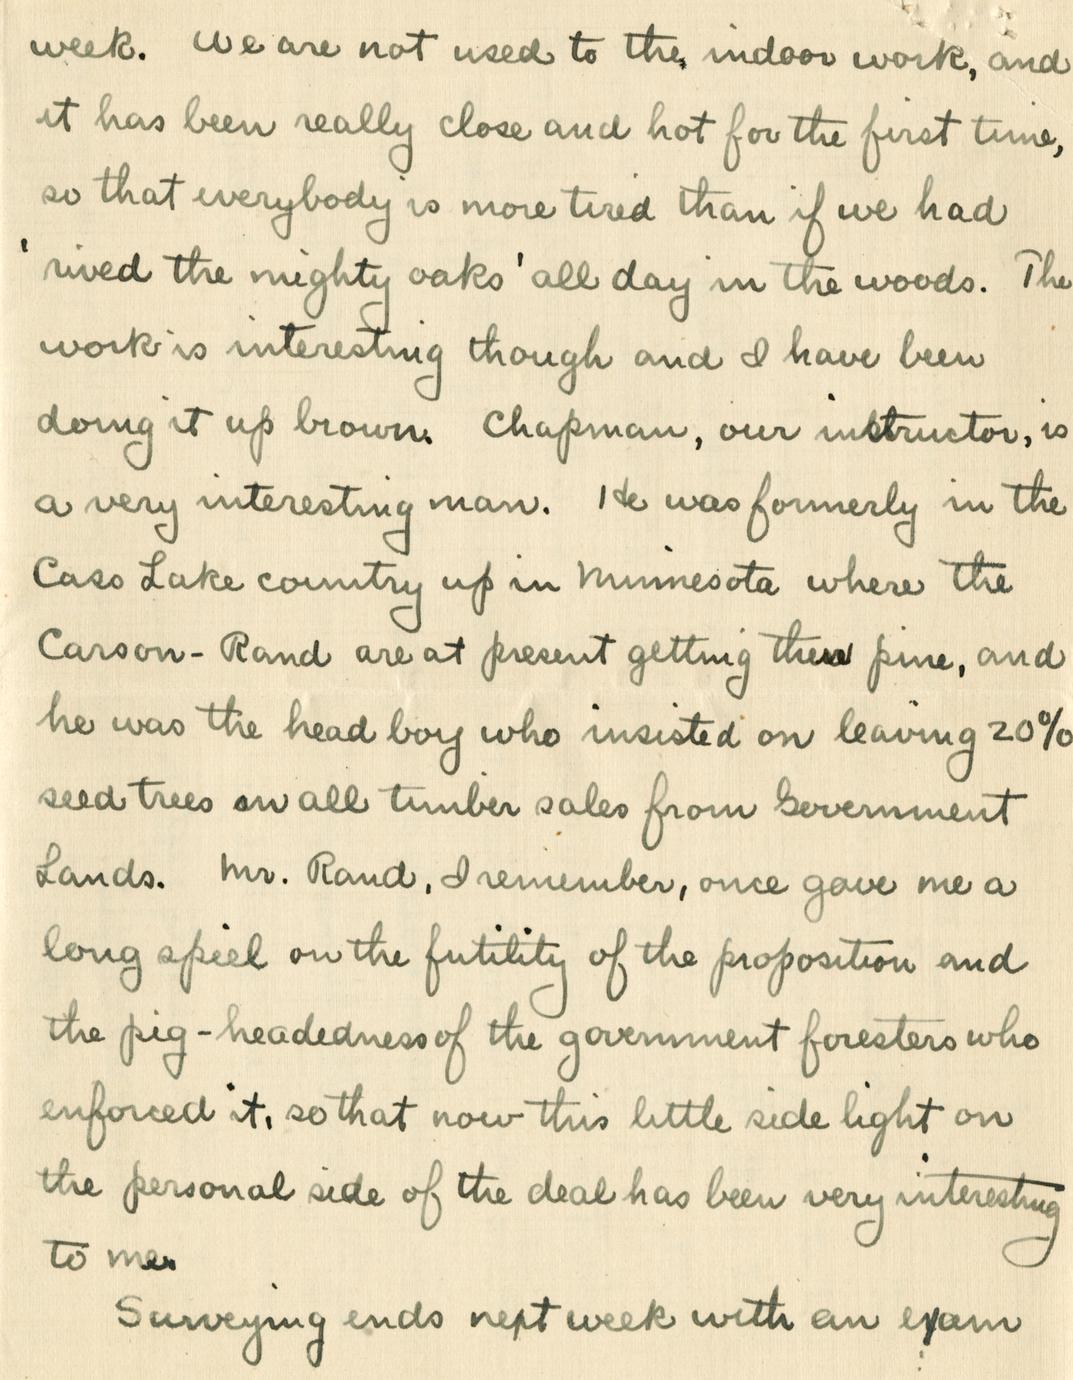 week. We are not used to the indoor work, and
it has been really close and hot for the first time,
so that everybody is more tired than if we had
'rived the mighty oaks' all day in the woods. The
work is interesting though and I have been
doing it up brown. Chapman, our instructor, is
a very interesting man. He was formerly in the
Cass Lake country up in Minnesota where the
Carson-Rand are at present getting their pine, and
he was the head boy who insisted on leaving 20%
seed trees on all timber sales from Government
Lands. Mr. Rand, I remember, once gave me a
long spiel on the futility of the proposition and
the pig-headedness of the government foresters who
enforced it, so that now this little side light on
the personal side of the deal has been very interesting
to me.
Surveying ends next week with an exam